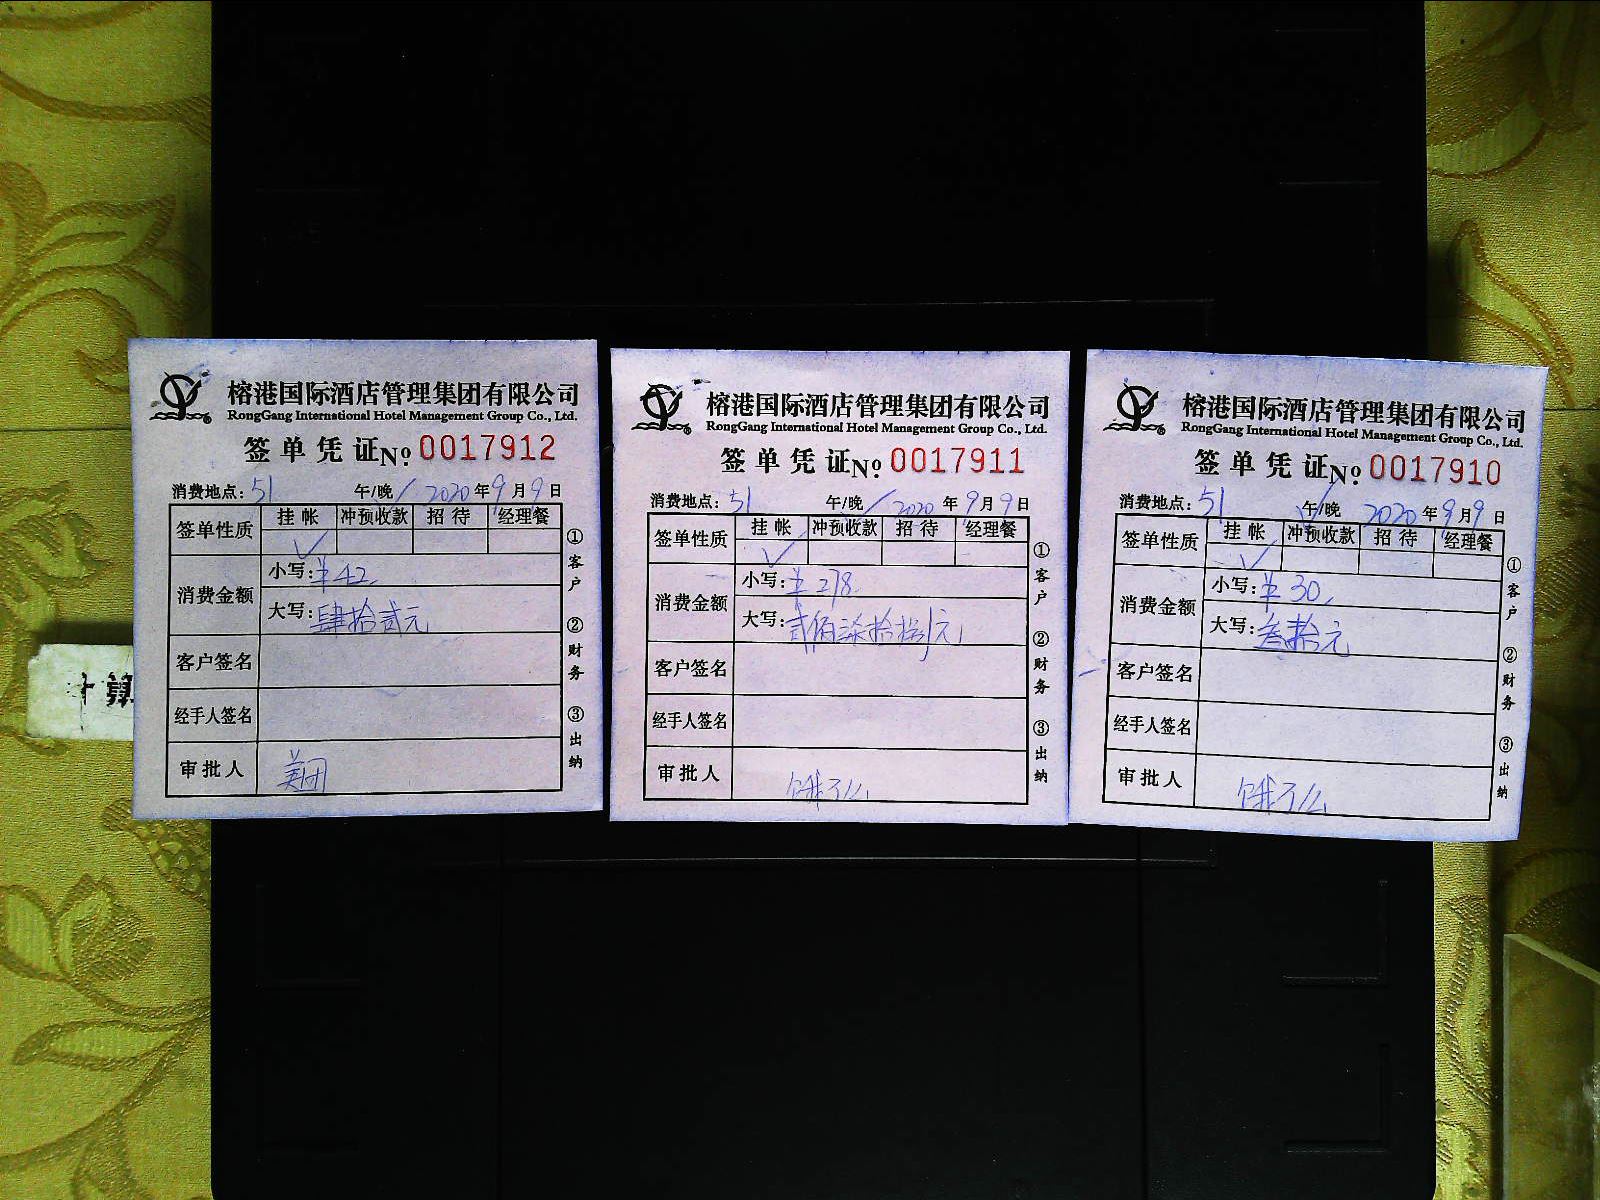 榕港国际酒店管理集团有限公司
RongGang International Hotel Management Group Co., Ltd.
签单凭证№ 0017912
消费地点：51 午/晚 2020年9月9日
签单性质 挂帐 冲预收款 招待 经理餐
✓
消费金额 小写：¥42
大写：肆拾贰元
客户签名
经手人签名
审批人 美团
①客户 ②财务 ③出纳
榕港国际酒店管理集团有限公司
RongGang International Hotel Management Group Co., Ltd.
签单凭证№ 0017911
消费地点：51 午/晚 2020年9月9日
签单性质 挂帐 冲预收款 招待 经理餐
✓
消费金额 小写：¥278
大写：贰佰柒拾捌元
客户签名
经手人签名
审批人 饿了么
①客户 ②财务 ③出纳
榕港国际酒店管理集团有限公司
RongGang International Hotel Management Group Co., Ltd.
签单凭证№ 0017910
消费地点：51 午/晚 2020年9月9日
签单性质 挂帐 冲预收款 招待 经理餐
✓
消费金额 小写：¥30
大写：叁拾元
客户签名
经手人签名
审批人 饿了么
①客户 ②财务 ③出纳